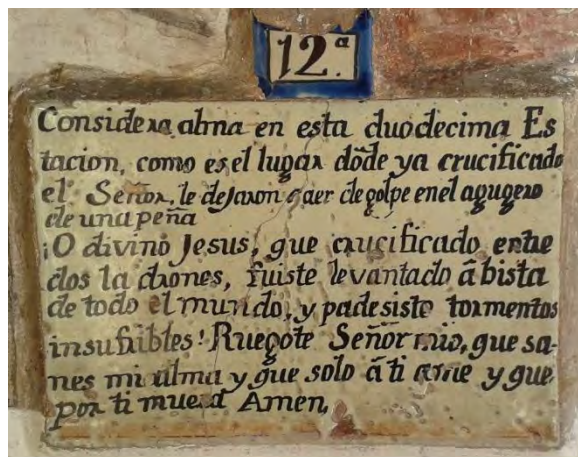 12.ª
Considera alma en esta duodecima Es
tacion, como es el lugar dõde ya crucificado
el Señor, le dejaron caer de golpe en el agugero
de una peña
¡O divino Jesus, que crucificado entre
dos ladrones, fuiste levantado â bista
de todo el mundo, y padesiste tormentos
insufribles! Ruegote Señor mio, que sa-
nes mi alma y que solo â ti ame y que
por ti muera Amen,